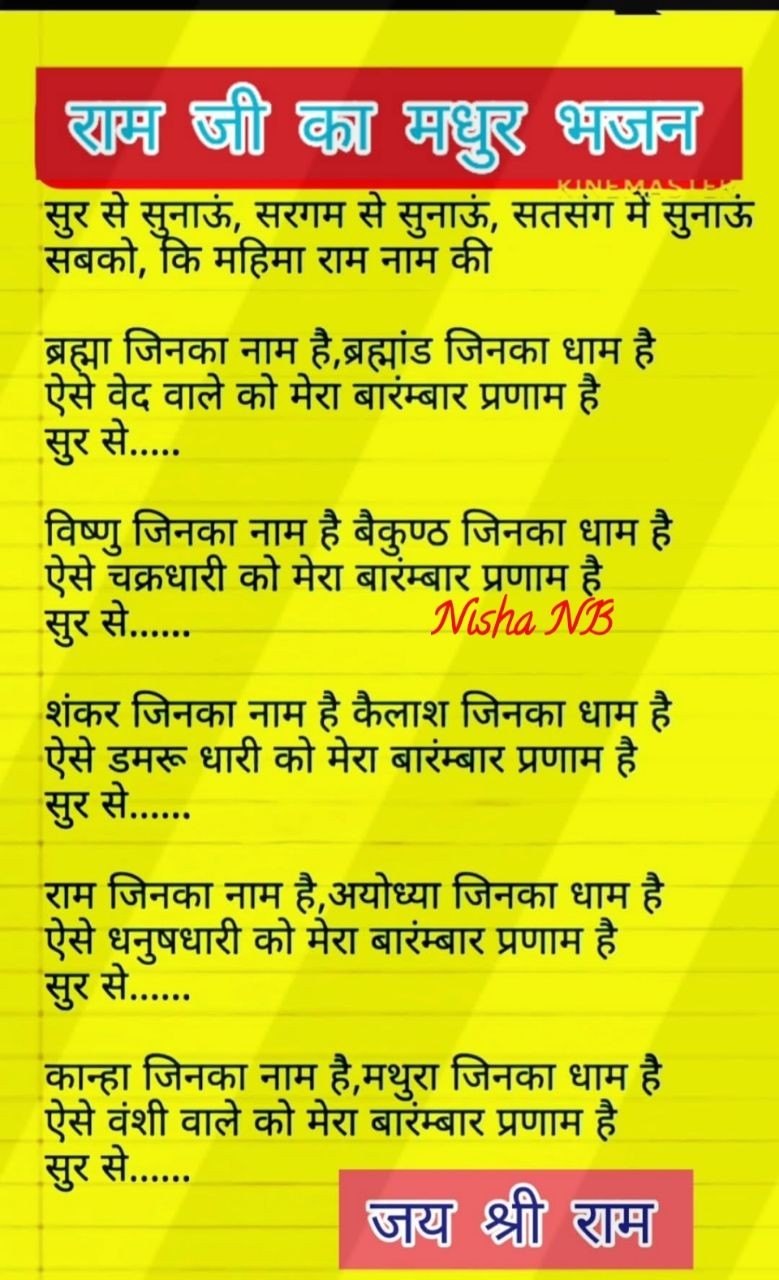 राम जी का मधुर भजन
KINEMASTER
सुर से सुनाऊं, सरगम से सुनाऊं, सतसंग में सुनाऊं
सबको, कि महिमा राम नाम की
ब्रह्मा जिनका नाम है,ब्रह्मांड जिनका धाम है
ऐसे वेद वाले को मेरा बारंम्बार प्रणाम है
सुर से.....
विष्णु जिनका नाम है बैकुण्ठ जिनका धाम है
ऐसे चक्रधारी को मेरा बारंम्बार प्रणाम है
सुर से......
Nisha NB
शंकर जिनका नाम है कैलाश जिनका धाम है
ऐसे डमरू धारी को मेरा बारंम्बार प्रणाम है
सुर से......
राम जिनका नाम है,अयोध्या जिनका धाम है
ऐसे धनुषधारी को मेरा बारंम्बार प्रणाम है
सुर से......
कान्हा जिनका नाम है,मथुरा जिनका धाम है
ऐसे वंशी वाले को मेरा बारंम्बार प्रणाम है
सुर से......
जय श्री राम